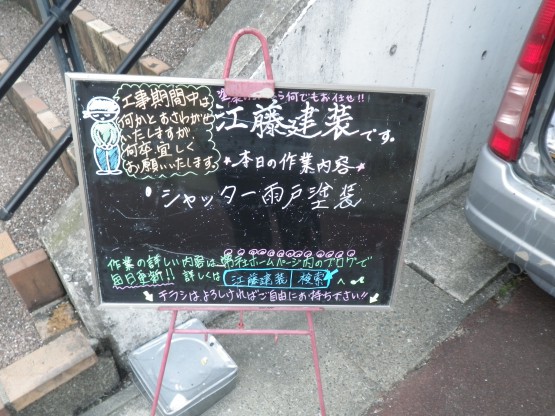 工事期間中は
何かとおさわがせ
いたしますが、
何卒宜しく
お願いいたします。
何でもお任せ!!
江藤建装です。
本日の作業内容
・シャッター雨戸塗装
作業の詳しい内容は弊社ホームページ内のブログで
毎日更新!! 詳しくは 江藤建装 検索 へ
チラシはよろしければご自由にお持ち下さい!!